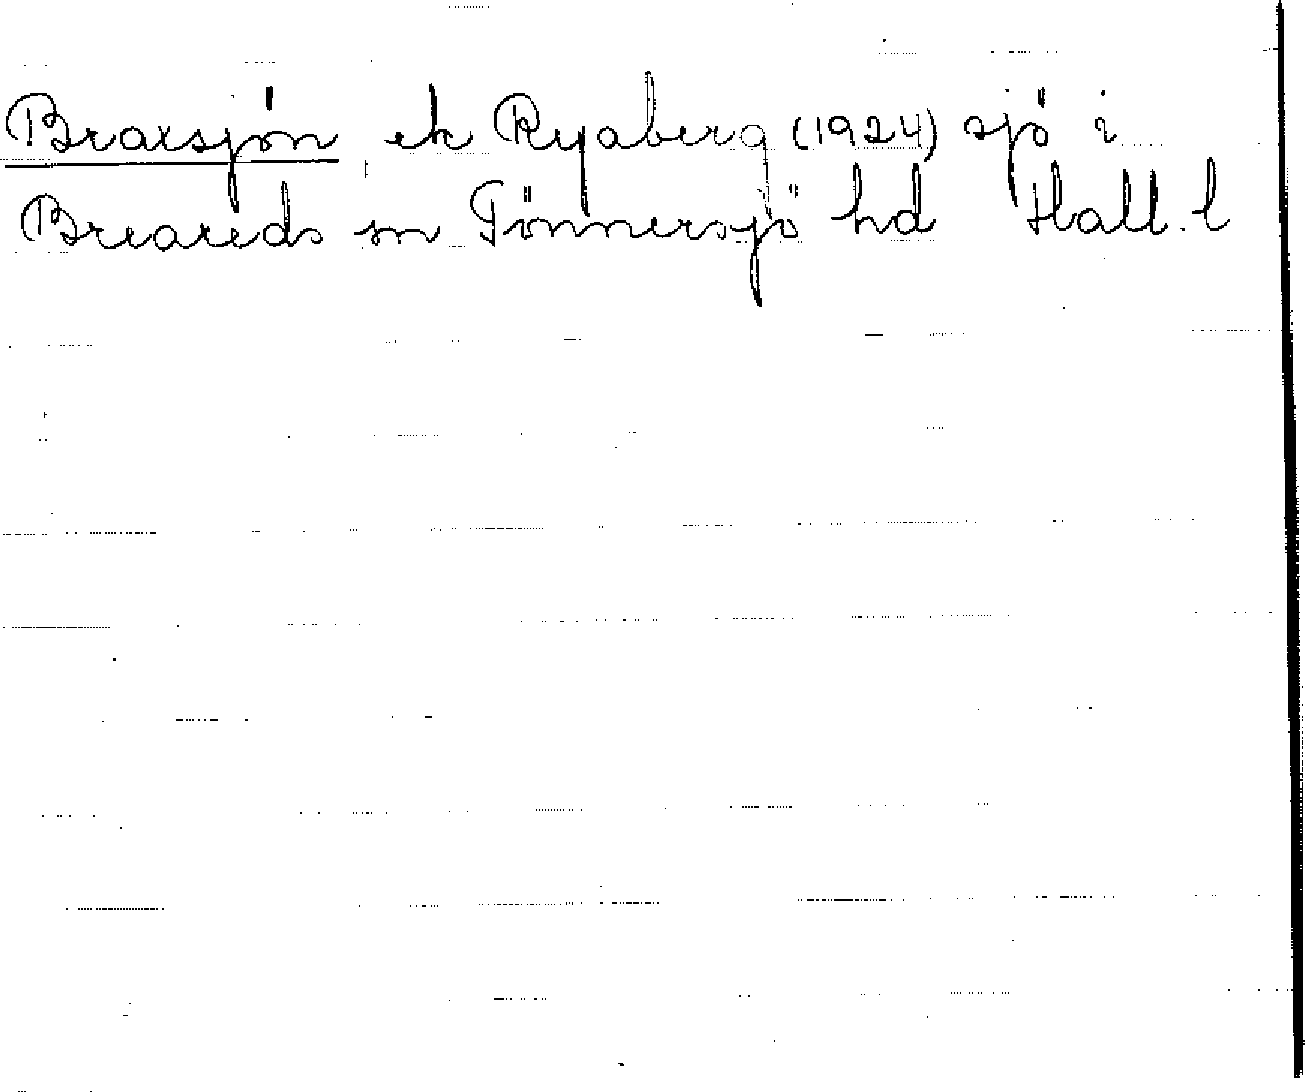 Braxsjön ek Ryaberg (1924) sjö i
Breareds sn Tönnersjö hd Hall. l